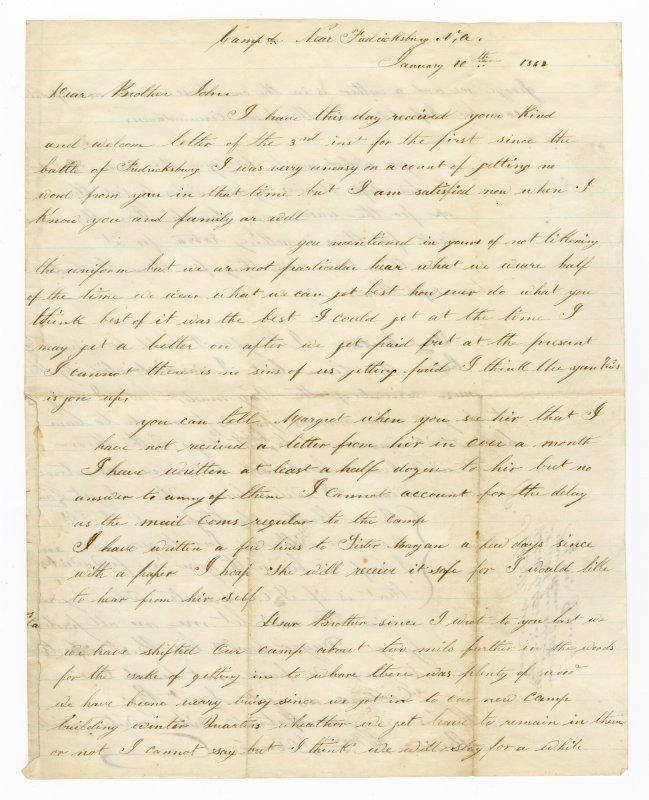 Camp Near Fredricksburg Va.
January 10th 1863
Dear Brother John
I have this day received your kind
and welcom letter of the 3rd inst for the first since the
battle of Fredricksburg I was verry uneasy on a count of getting no
word from you in that time but I am satisfied now when I
know you and family ar well
you mentioned in yours of not likening
the uniform but we ar not prarticular hear what we weare half
of the time we wear what we can get best how ever do what you
think best of it was the best I could get at the time I
may get a better on after we get paid but at the present
I cannot there is no sins of us getting paid I think the yankies
is jon up,
you can tell Margret when you see hir that I
have not received a letter from hir in over a month
I have written at least a half dozin to hir but no
answer to anny of them I cannot account for the delay
as the mail coms regular to the camp
I have written a few lines to Sister Maryan a few days since
with a paper I hoap she will receive it safe for I would like
to hear from hir self
Dear Brother since I wrot to you last we
we have shifted our camp about two mils further in the woods
for the sake of getting in to whare there was plenty of wood
we have beene veary buisy since we got in to our new camp
building winter Quarters wheather we get leave to remain in them
or not I cannot say but I think we will stay for a while